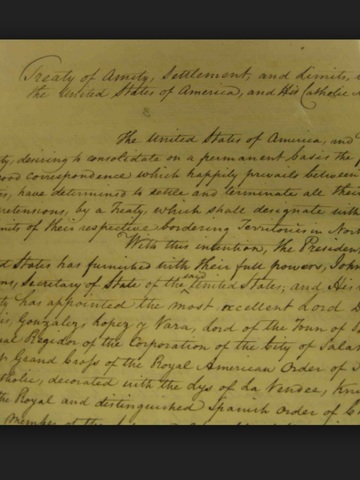 Treaty of Amity, Settlement, and Limits,
the United States of America, and His Catholic
The United States of America, and
ty, desiring to consolidate on a permanent basis the
good correspondence which happily prevails between
have determined to settle and terminate all their
pretensions, by a Treaty, which shall designate with
of their respective bordering Territories in Nort
With this intention, the President
d States has furnished with their full powers, John
Secretary of State of the said United States; and His
ty has appointed the most excellent Lord D
is, Gonzalez, Lopez y Vara, Lord of the Town of
ual Regidor of the Corporation of the City of Sala
Grand Cross of the Royal American Order of I
tholic, decorated with the Lys of La Vendee, Kni
the Royal and distinguished Spanish Order of C
Member of the